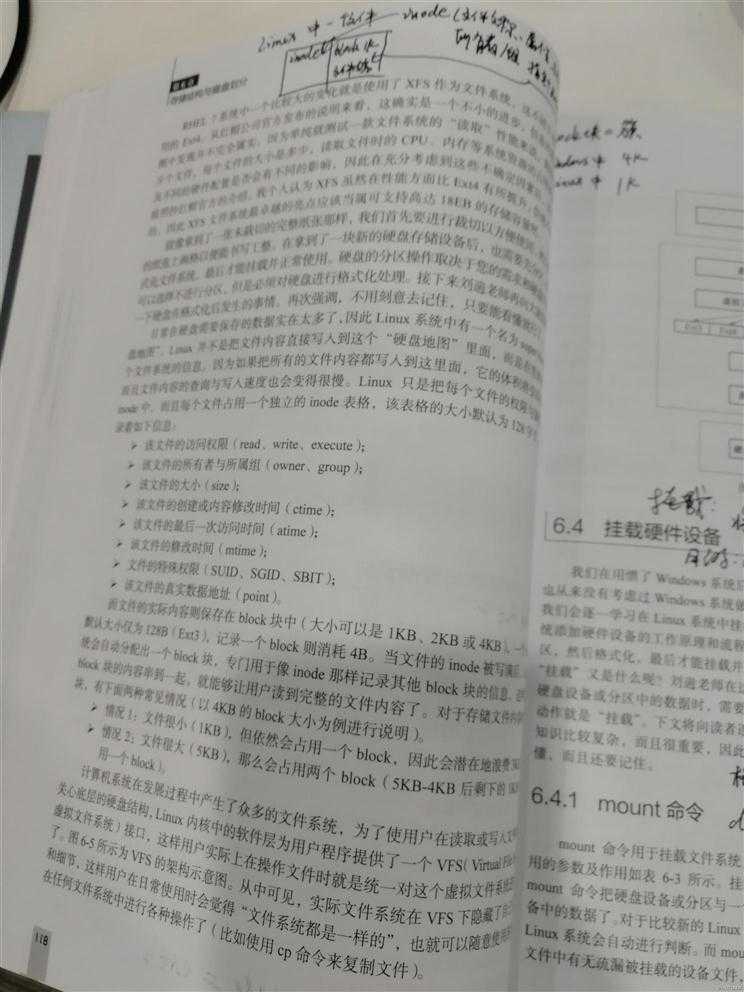 Linux 中一个文件 inode
inode block 1k
第6章
存储结构与磁盘划分
RHEL 7系统中一个比较大的变化就是使用了 XFS 作为文件系统，这不同
用的 Ext4。从红帽公司官方发布的说明来看，这确实是一个不小的进步，但是
例中发现并不完全属实。因为单纯就测试一款文件系统的“读取”性能来说，
多少文件，每个文件的大小是多少，读取文件时的 CPU、内存等系统资源
及不同的硬件配置是否会有不同的影响，因此在充分考虑到这些不确定因素
接照抄红帽官方的介绍。我个人认为 XFS 虽然在性能方面比 Ext4 有所提升，但
的，因此 XFS 文件系统最卓越的亮点应该当属可支持高达 18EB 的存储容量
就像拿到了一张未裁切的完整纸张那样，我们首先要进行裁切以方便使用，
的纸张上画格以便能书写工整。在拿到了一块新的硬盘存储设备后，也需要先
式化文件系统，最后才能挂载并正常使用。硬盘的分区操作取决于您的需求和硬盘
可以选择不进行分区，但是必须对硬盘进行格式化处理。接下来刘遄老师再向大家
一下硬盘在格式化后发生的事情。再次强调，不用刻意去记住，只要能看懂就行
日常在硬盘需要保存的数据实在太多了，因此 Linux 系统中有一个名为 super
盘地图”。Linux 并不是把文件内容直接写入到这个“硬盘地图”里面，而是在
个文件系统的信息。因为如果把所有的文件内容都写入到这里面，它的体积将
而且文件内容的查询与写入速度也会变得很慢。Linux 只是把每个文件的权限与
inode 中，而且每个文件占用一个独立的 inode 表格，该表格的大小默认为 128 字
录着如下信息：
➢ 该文件的访问权限（read、write、execute）；
➢ 该文件的所有者与所属组（owner、group）；
➢ 该文件的大小（size）；
➢ 该文件的创建或内容修改时间（ctime）；
➢ 该文件的最后一次访问时间（atime）；
➢ 该文件的修改时间（mtime）；
➢ 文件的特殊权限（SUID、SGID、SBIT）；
➢ 该文件的真实数据地址（point）。
而文件的实际内容则保存在 block 块中（大小可以是 1KB、2KB 或 4KB），一个
默认大小仅为 128B（Ext3），记录一个 block 则消耗 4B。当文件的 inode 被写满后，
统会自动分配出一个 block 块，专门用于像 inode 那样记录其他 block 块的信息，这
block 块的内容串到一起，就能够让用户读到完整的文件内容了。对于存储文件内容
块，有下面两种常见情况（以 4KB 的 block 大小为例进行说明）。
➢ 情况 1：文件很小（1KB），但依然会占用一个 block，因此会潜在地浪费 3K
➢ 情况 2：文件很大（5KB），那么会占用两个 block（5KB-4KB 后剩下的 1K
用一个 block）。
计算机系统在发展过程中产生了众多的文件系统，为了使用户在读取或写入文件
关心底层的硬盘结构，Linux 内核中的软件层为用户程序提供了一个 VFS（Virtual File
虚拟文件系统）接口，这样用户实际上在操作文件时就是统一对这个虚拟文件系统
了。图 6-5 所示为 VFS 的架构示意图。从中可见，实际文件系统在 VFS 下隐藏了自己
和细节，这样用户在日常使用时会觉得“文件系统都是一样的”，也就可以随意使用
在任何文件系统中进行各种操作了（比如使用 cp 命令来复制文件）。
118
4K
1K
Ext3
6.4 挂载硬件设备
我们在用惯了 Windows 系统后
也从来没有考虑过 Windows 系统做
我们会逐一学习在 Linux 系统中挂
统添加硬件设备的工作原理和流程
区，然后格式化，最后才能挂载并
“挂载”又是什么呢？刘遄老师在这
硬盘设备或分区中的数据时，需要
动作就是“挂载”。下文将向读者逐
知识比较复杂，而且很重要，因此
懂，而且还要记住。
6.4.1 mount 命令
mount 命令用于挂载文件系统
用的参数及作用如表 6-3 所示。挂
mount 命令把硬盘设备或分区与一
备中的数据了。对于比较新的 Linux
Linux 系统会自动进行判断。而 mou
文件中有无疏漏被挂载的设备文件，